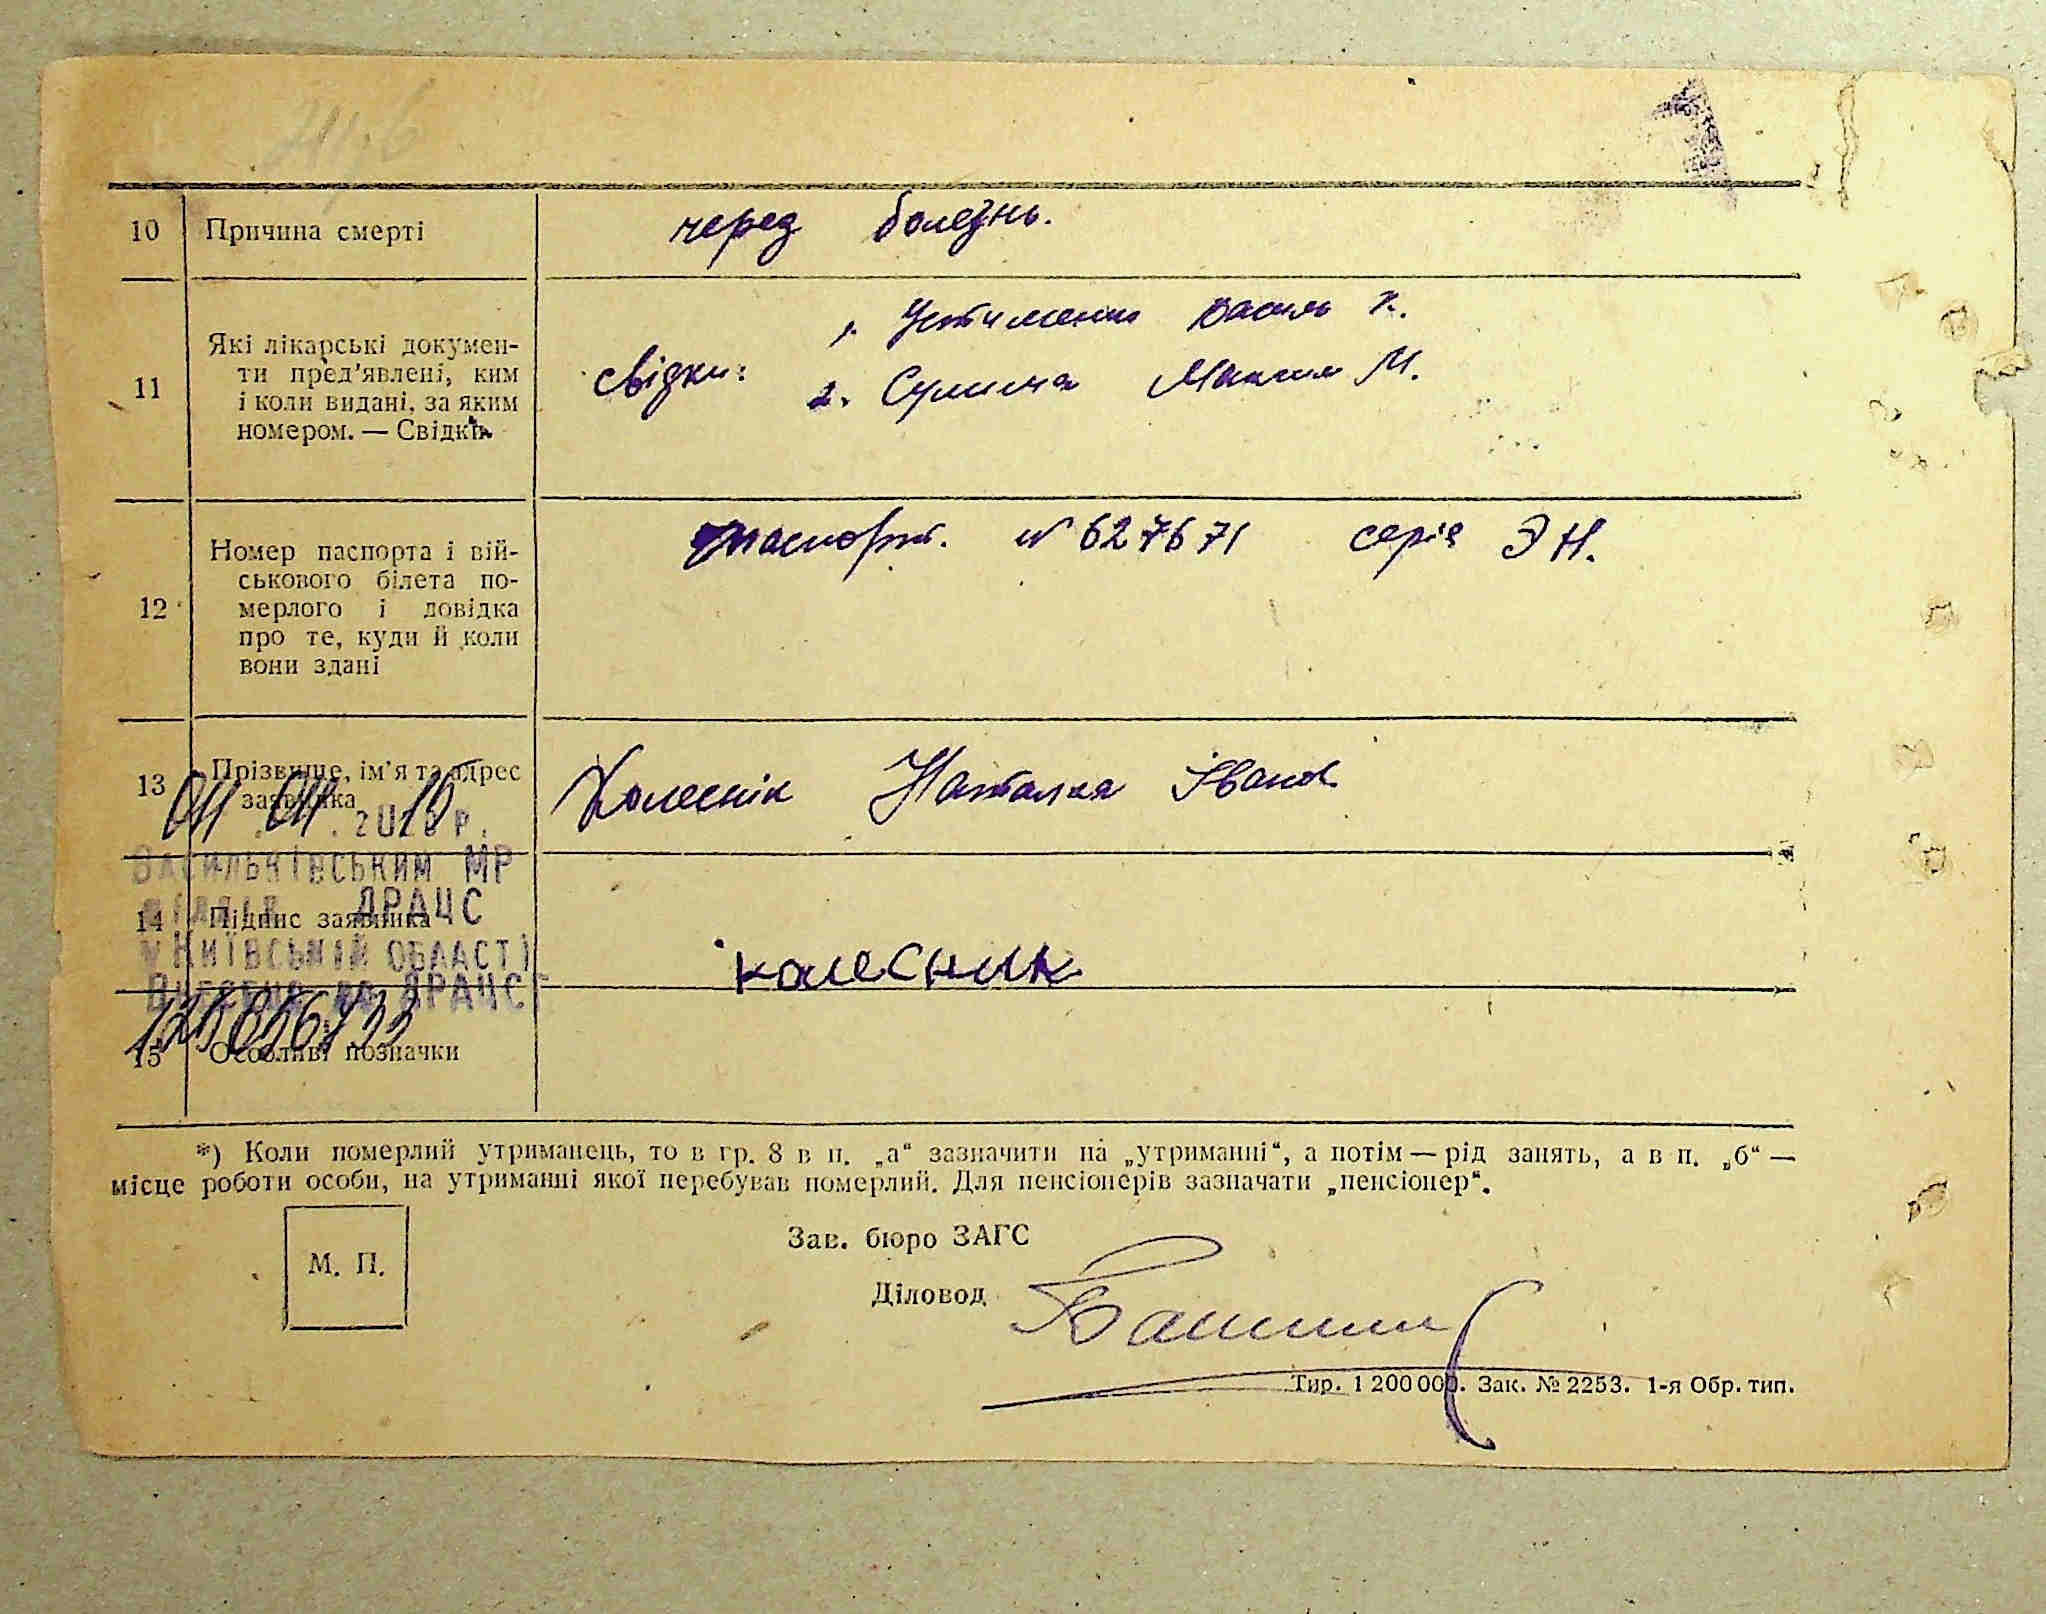 10 Причина смерті черед болезнь.
11 Які лікарські докумен-
ти пред'явлені, ким
і коли видані, за яким
номером. — Свідки
свідки: 1. Устименко Василь К.
2. Сулима Максим М.
12 Номер паспорта і вій-
ськового білета по-
мерлого і довідка
про те, куди й коли
вони здані
паспорт. № 627671 серія ЭН.
13 Прізвище, ім'я та адрес
заявника
Колеснік Наталка Іван
Васильківським МР
ДРАЦС
у Київській області
ДРАЦС
14 Підпис заявника
колесник
15 Особливі позначки
*) Коли померлий утриманець, то в гр. 8 в п. „а“ зазначити на „утриманні“, а потім — рід занять, а в п. „б“ —
місце роботи особи, на утриманні якої перебував померлий. Для пенсіонерів зазначати „пенсіонер“.
М. П.
Зав. бюро ЗАГС
Діловод
Тир. 1 200 000. Зак. № 2253. 1-я Обр. тип.